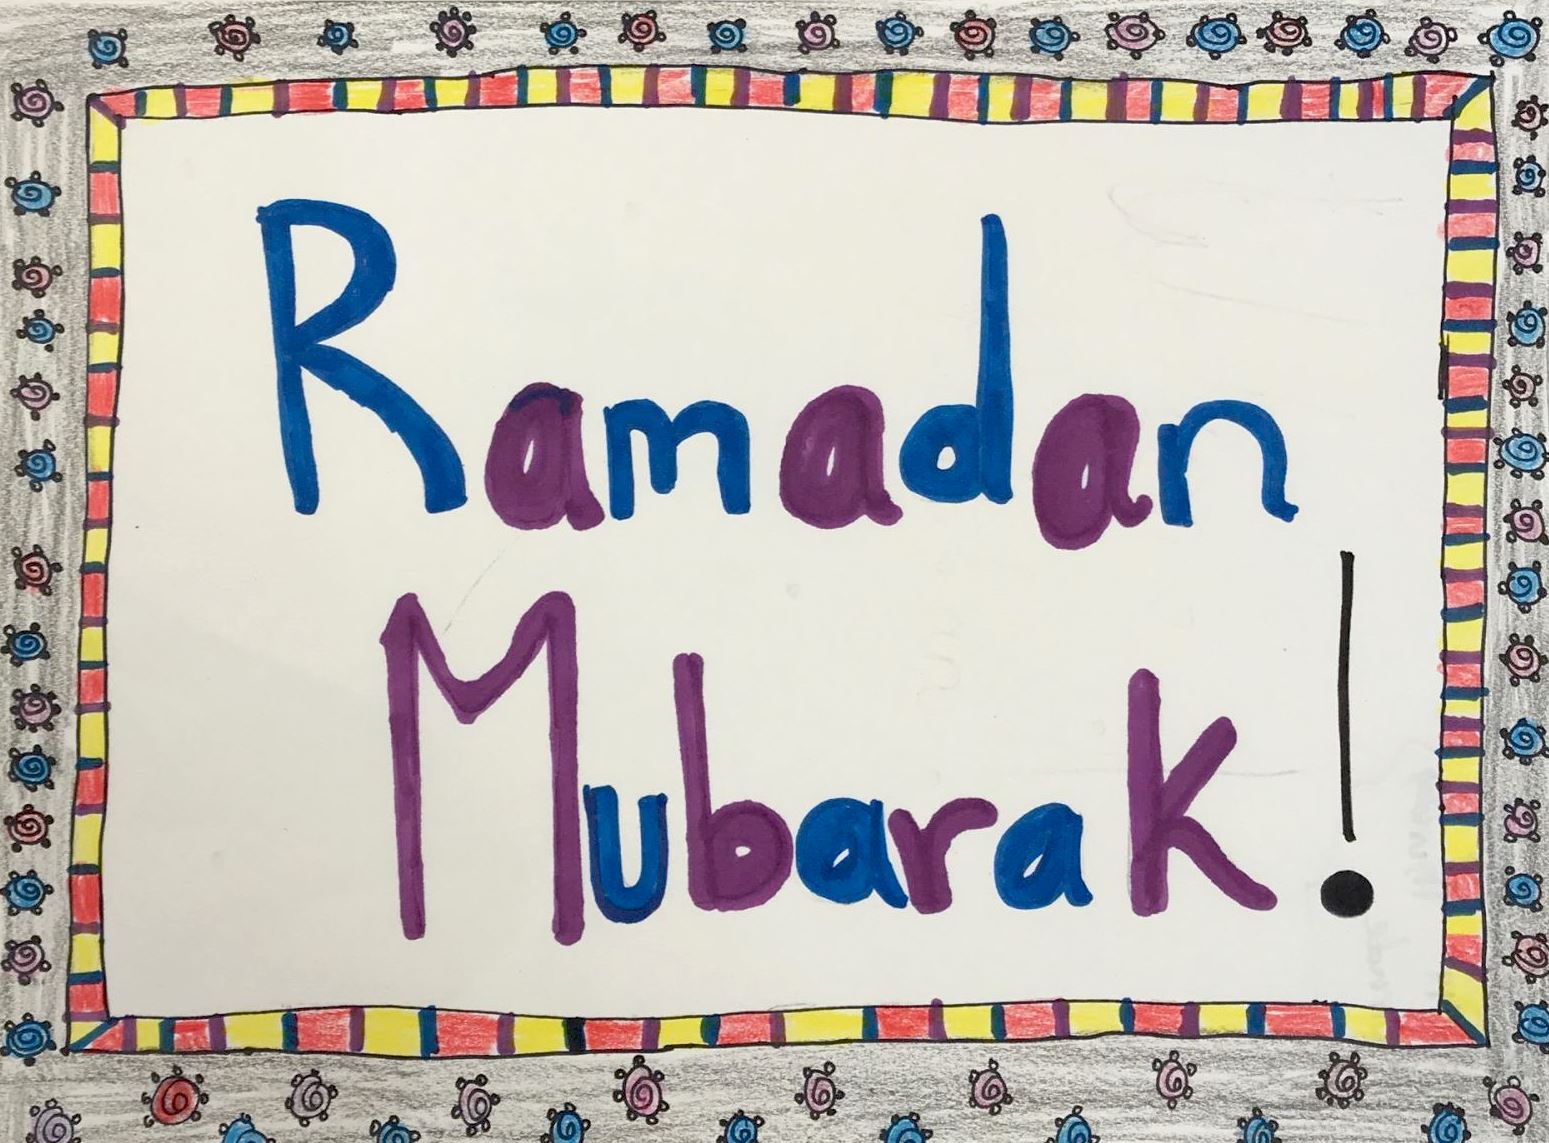 Ramadan
Mubarak!